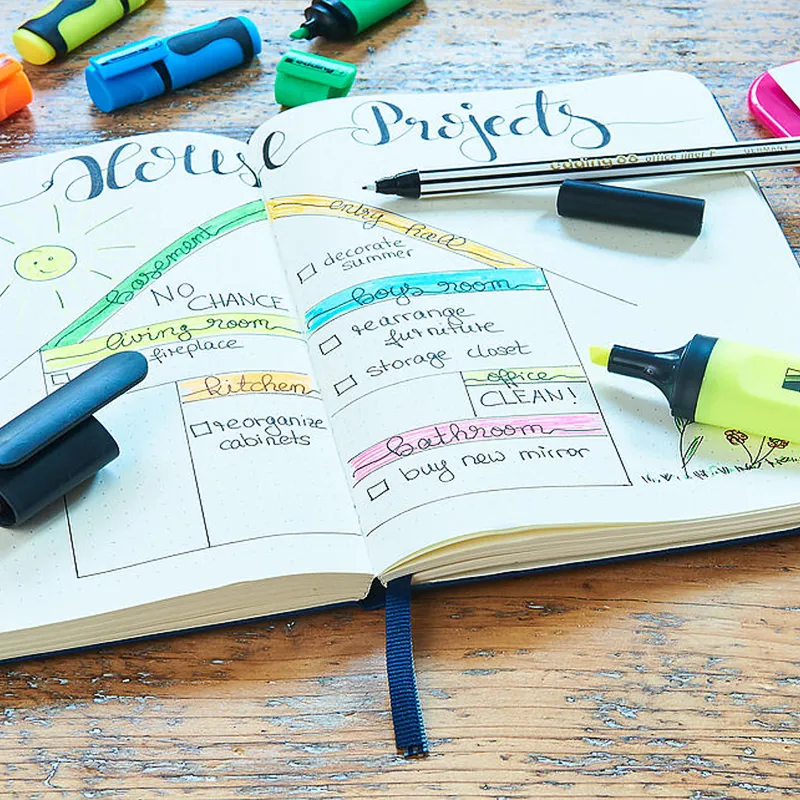 House Projects
basement
NO CHANCE
living room
fireplace
kitchen
reorganize
cabinets
entry hall
decorate
summer
boys room
rearrange
furniture
storage closet
office
CLEAN!
bathroom
buy new mirror
edding 88 office liner F GERMANY
edding